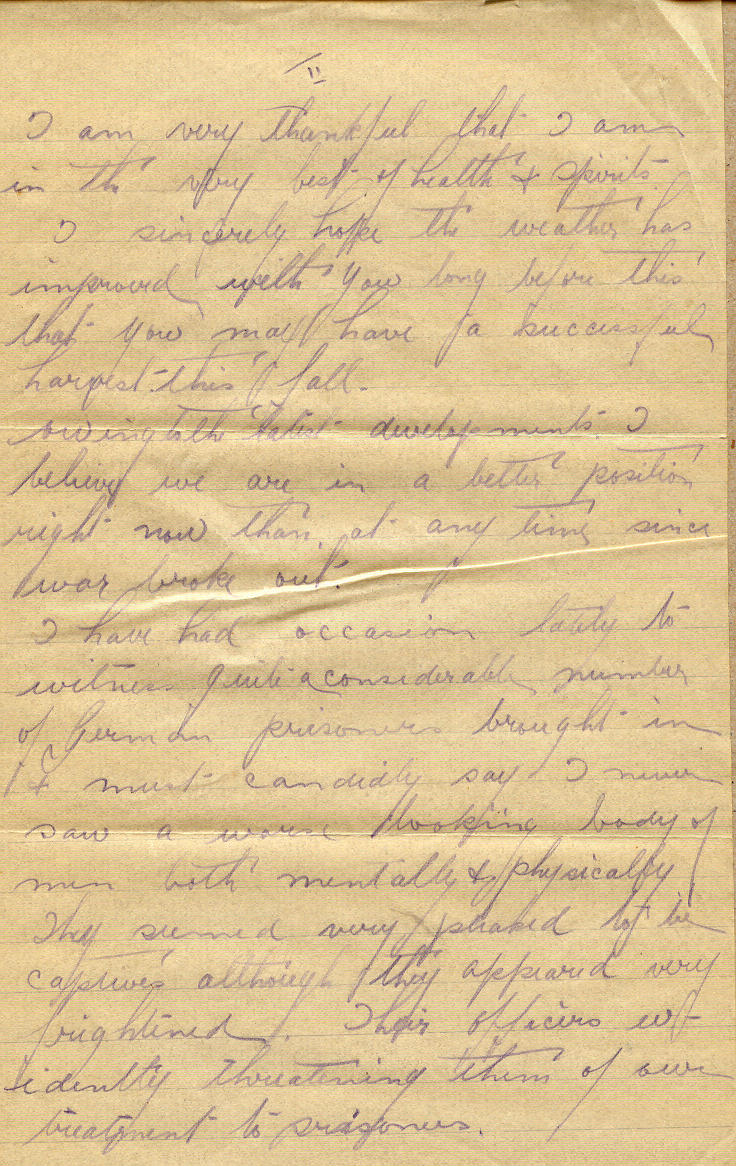 II
I am very thankful that I am
in the very best of health & spirits.
I sincerely hope the weather has
improved with you long before this
that you may have a successful
harvest this fall.
owing to the latest developments I
believe we are in a better position
right now than at any time since
war broke out.
I have had occasion lately to
witness quite a considerable number
of German prisoners brought in
& must candidly say I never
saw a worse looking body of
men both mentally & physically
They seemed very pleased to be
captives although they appeared very
frightened. Their officers ev-
idently threatening them of our
treatment to prisoners.